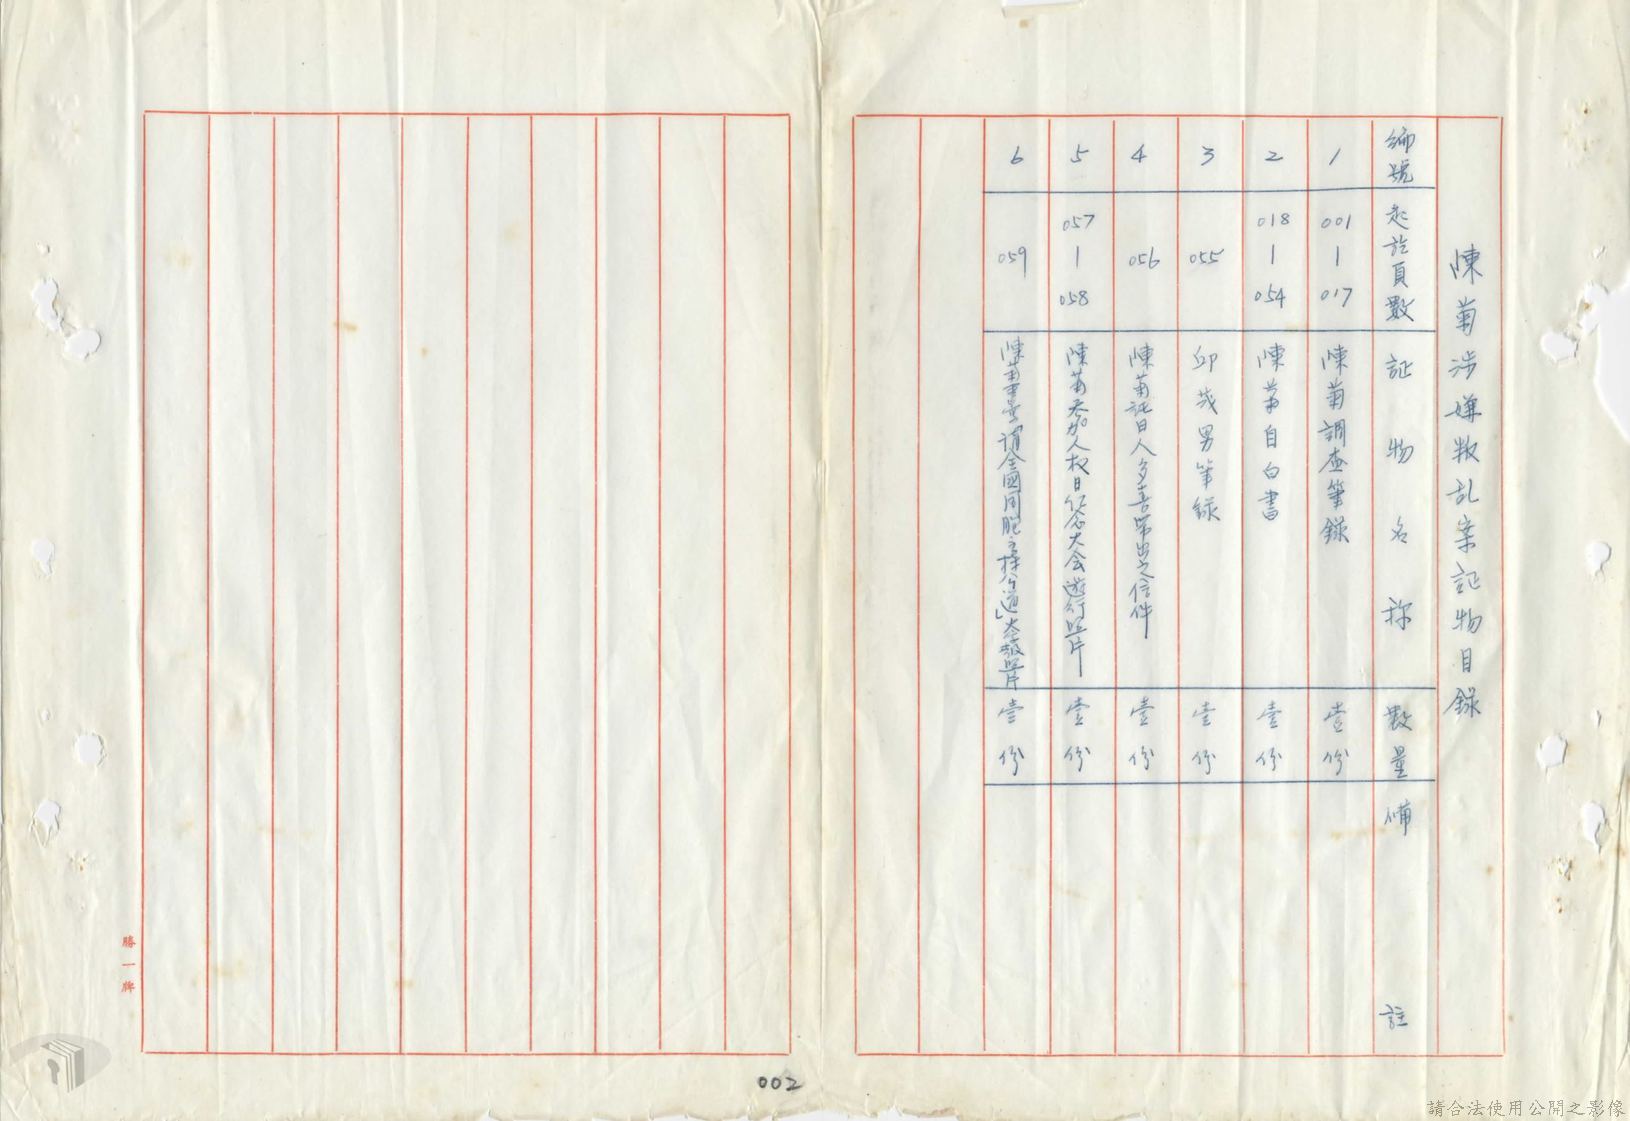 陳菊涉嫌叛乱案証物目錄
編號 起訖頁數 証物名称 數量 備註
1 001-017 陳菊調查筆錄 壹份
2 018-054 陳菊自白書 壹份
3 055 邱茂男筆錄 壹份
4 056 陳菊託日人多喜帶出之信件 壹份
5 057-058 陳菊参加人权日紀念大会遊行照片 壹份
6 059 陳菊 謂全國同胞主持公道」大字報照片 壹份
勝一牌
002
請合法使用公開之影像